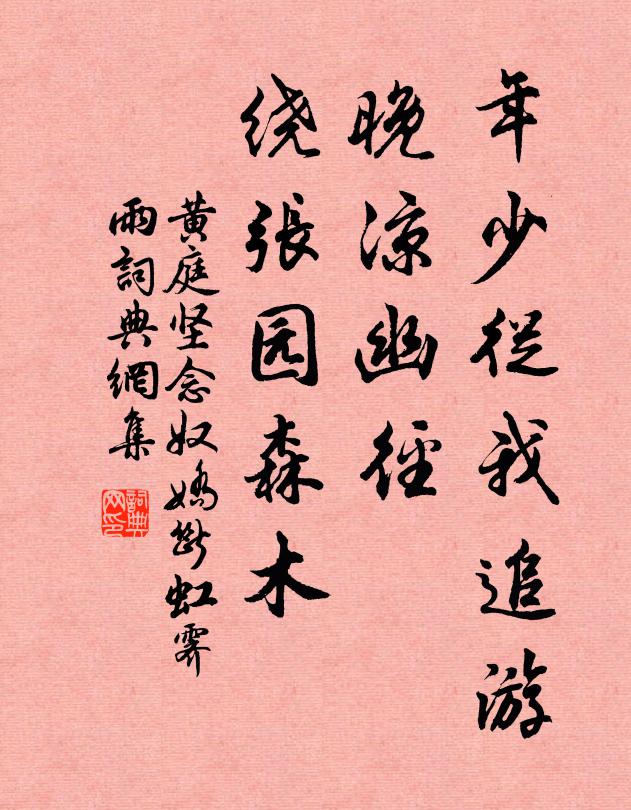 年少從我追游
晚凉幽徑
绕張园森木
黄庭坚念奴嬌斷虹霽
雨詞典網集
詞典网印